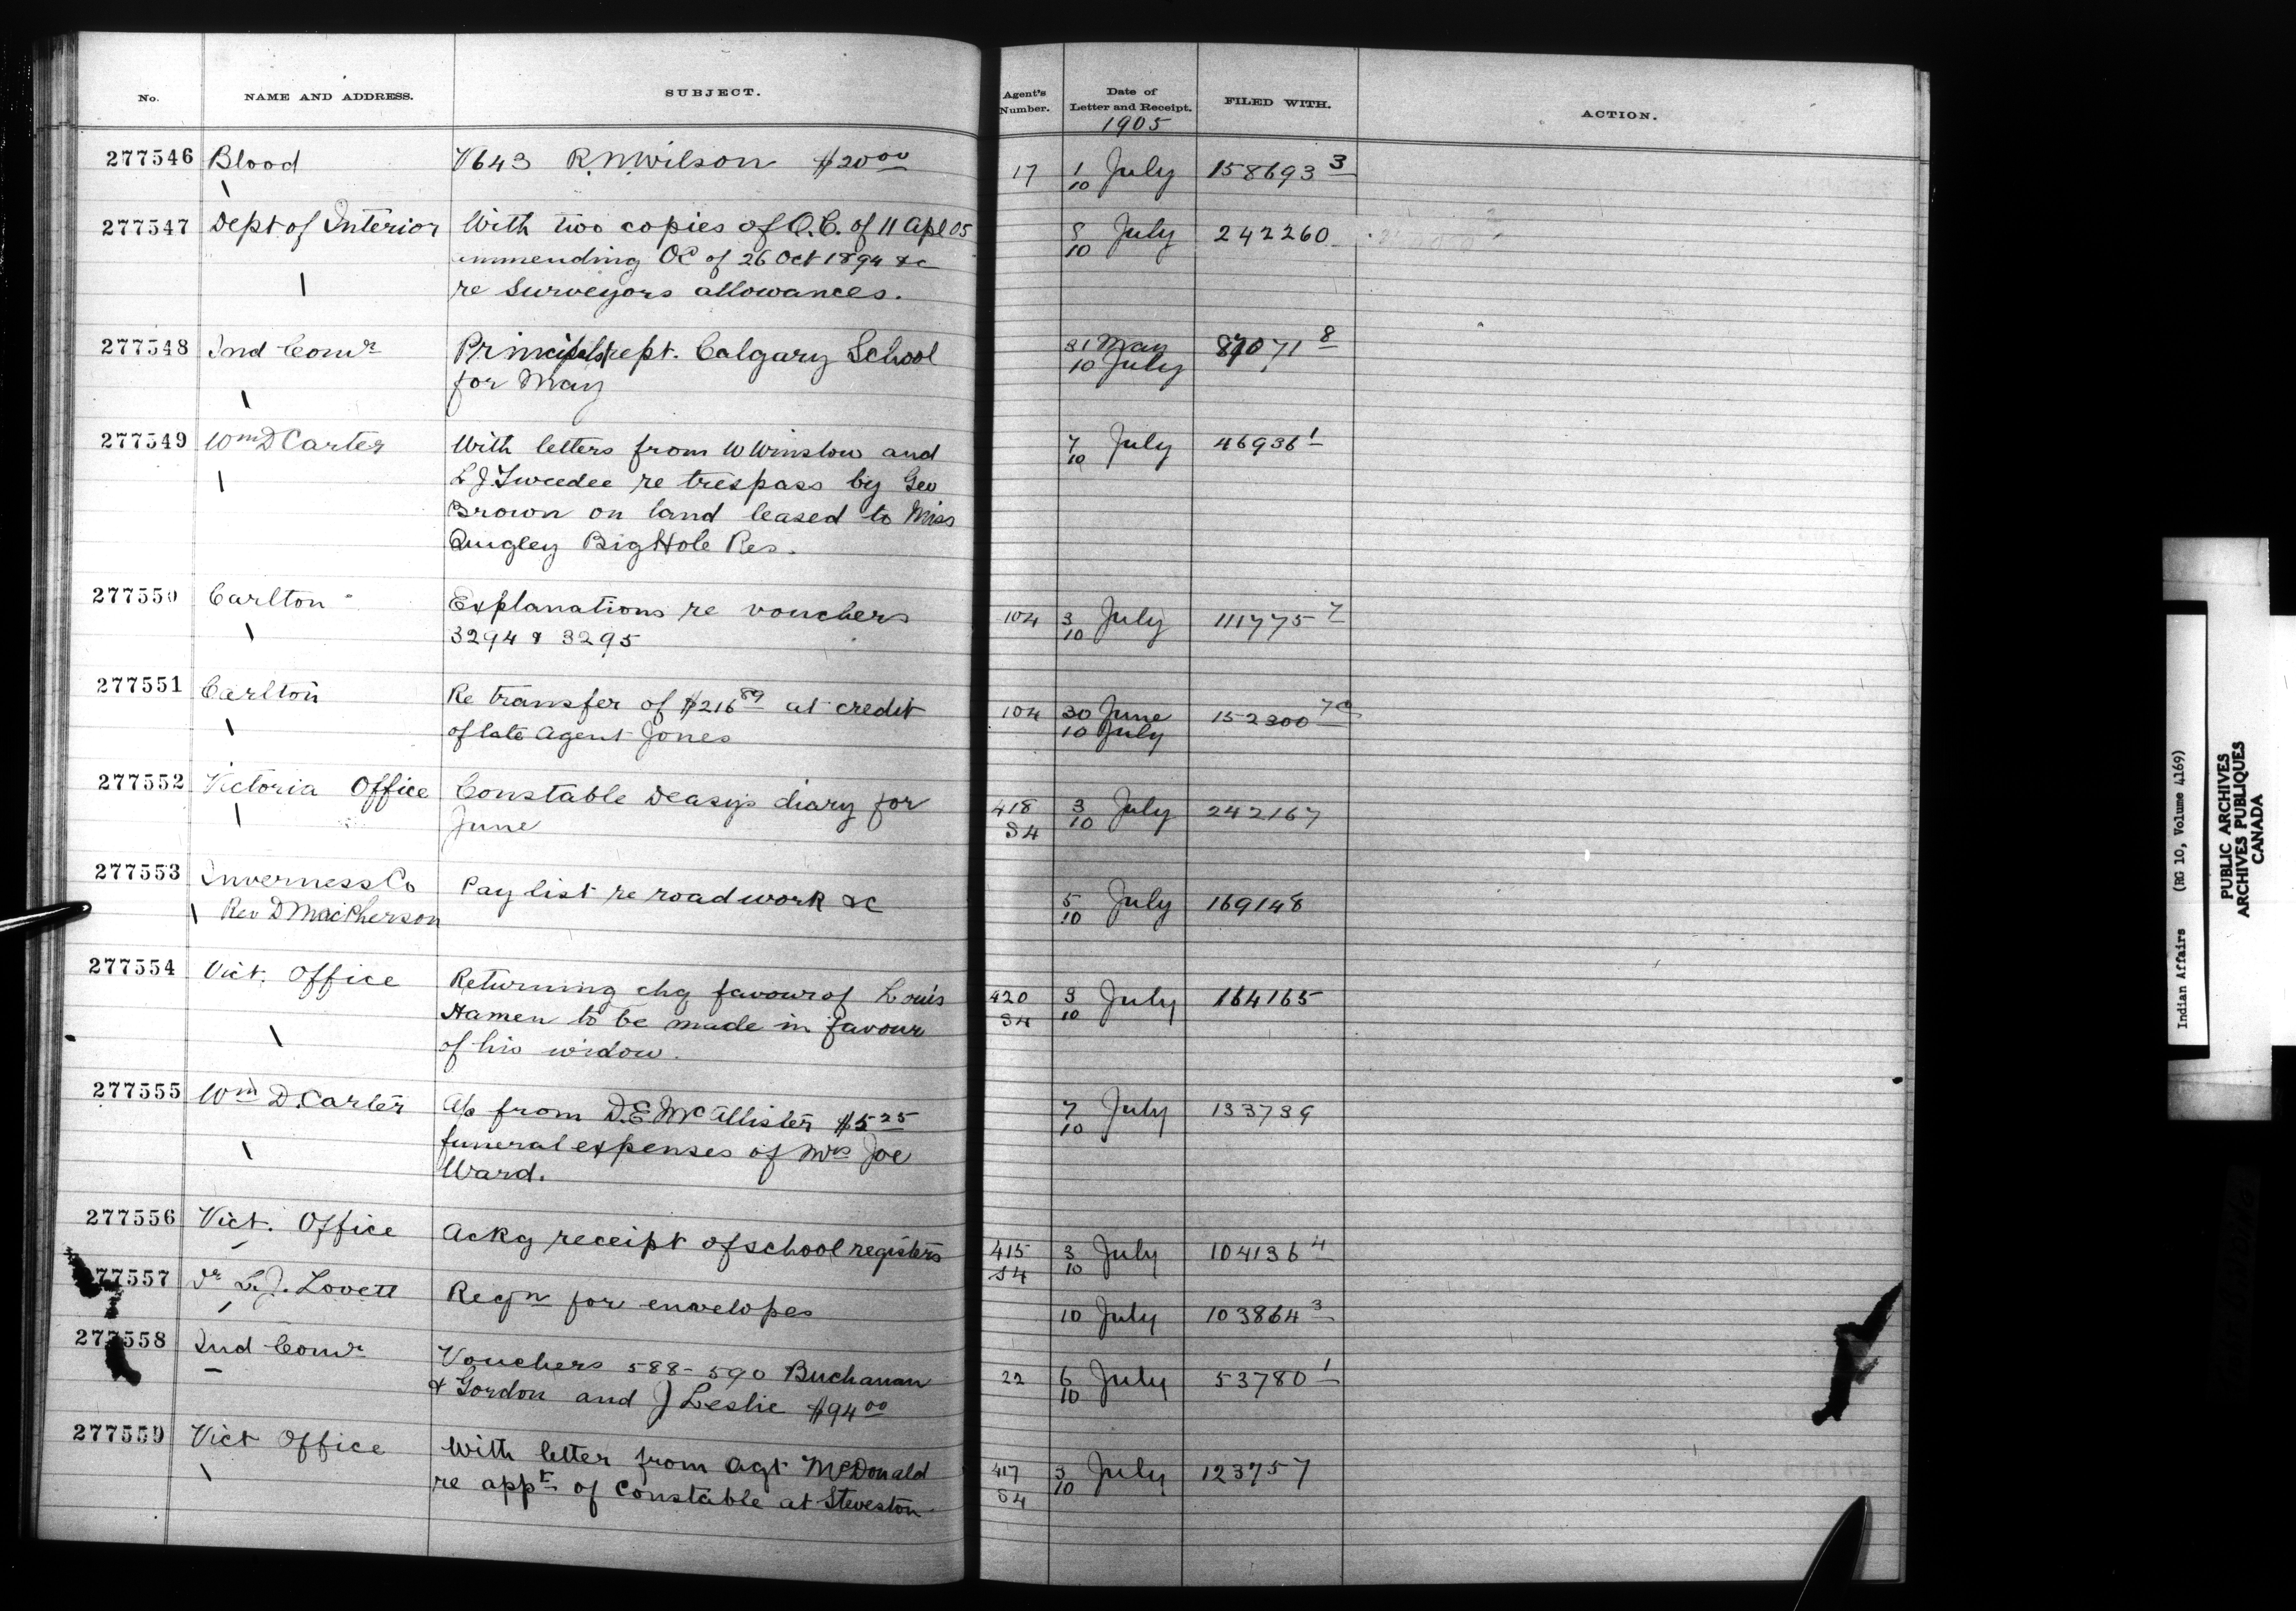 No. NAME AND ADDRESS. SUBJECT. Agent's Number. Date of Letter and Receipt. FILED WITH. ACTION.
1905
277546 Blood V643 R.N.Wilson $20.00 17 1 July 158693 3
10
277547 Dept of Interior With two copies of O.C. of 11 Apl 05 8 July 242260
10
ammending OC of 26 Oct 1894 &c
re Surveyors allowances.
277548 Ind Comr Principals rept. Calgary School 31 May 87071 8
for May 10 July
277549 Wm D Carter With letters from W Winslow and 7 July 46936 1
10
L J Tweedee re trespass by Geo
Brown on land leased to Miss
Quigley Big Hole Res.
277550 Carlton Explanations re vouchers 104 3 July 111775 7
3294 & 3295 10
277551 Carlton Re transfer of $216 89 at credit 104 30 June 152300
of late Agent Jones 10 July
277552 Victoria Office Constable Deasy's diary for 418 3 July 242167
June S4 10
277553 Inverness Co Pay list re road work &c 5 July 169148
Rev D MacPherson 10
277554 Vict. Office Returning chq favour of Louis 420 3 July 164165
Hamen to be made in favour S4 10
of his widow.
277555 Wm D. Carter A/c from D.E McAllister $5 25 7 July 133739
funeral expenses of Mrs Joe 10
Ward.
277556 Vict. Office Ackg receipt of school registers 415 3 July 104136 4
S4 10
277557 Dr L.J. Lovett Reqn for envelopes 10 July 103864 3
277558 Ind Comr Vouchers 588-590 Buchanan 22 6 July 53780 1
& Gordon and J Leslie $94 00 10
277559 Vict Office With letter from Agt McDonald 417 3 July 123757
re appt of Constable at Steveston S4 10
Indian Affairs (RG 10, Volume 4169)
PUBLIC ARCHIVES
ARCHIVES PUBLIQUES
CANADA